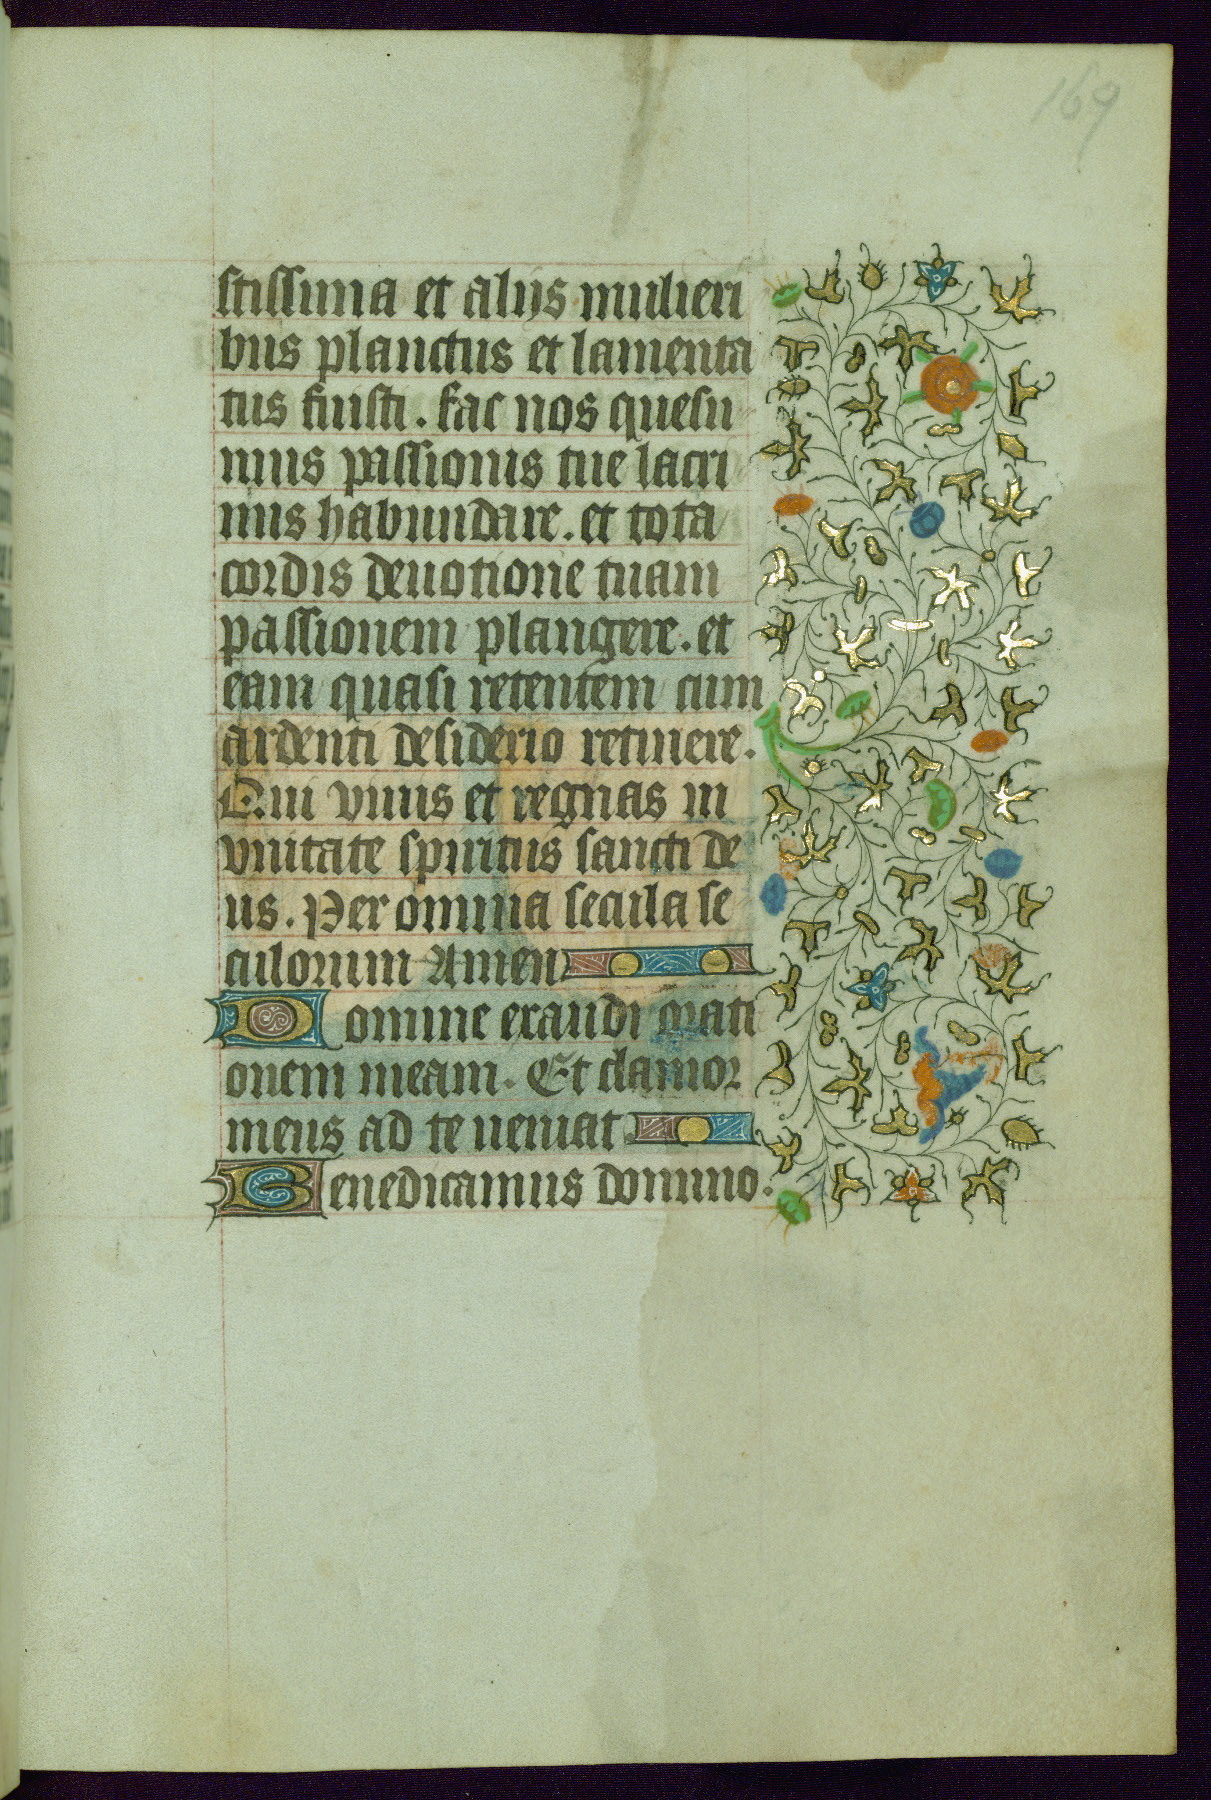 169
stissima et alijs mulieri
bus planctus et lamenta
tus fuisti. fac nos quesu
mus passionis tue lacri
mis habundare. et tota
cordis deuotione tuam
passionem plangere. et
eam quasi retentem cum
ardenti desiderio retinere.
Qui viuis et regnas in
vnitate spiritus sancti de
us. Per omnia secula se
culorum Amen
Domine exaudi orati
onem meam. Et clamor
meus ad te veniat
Benedicamus domino.